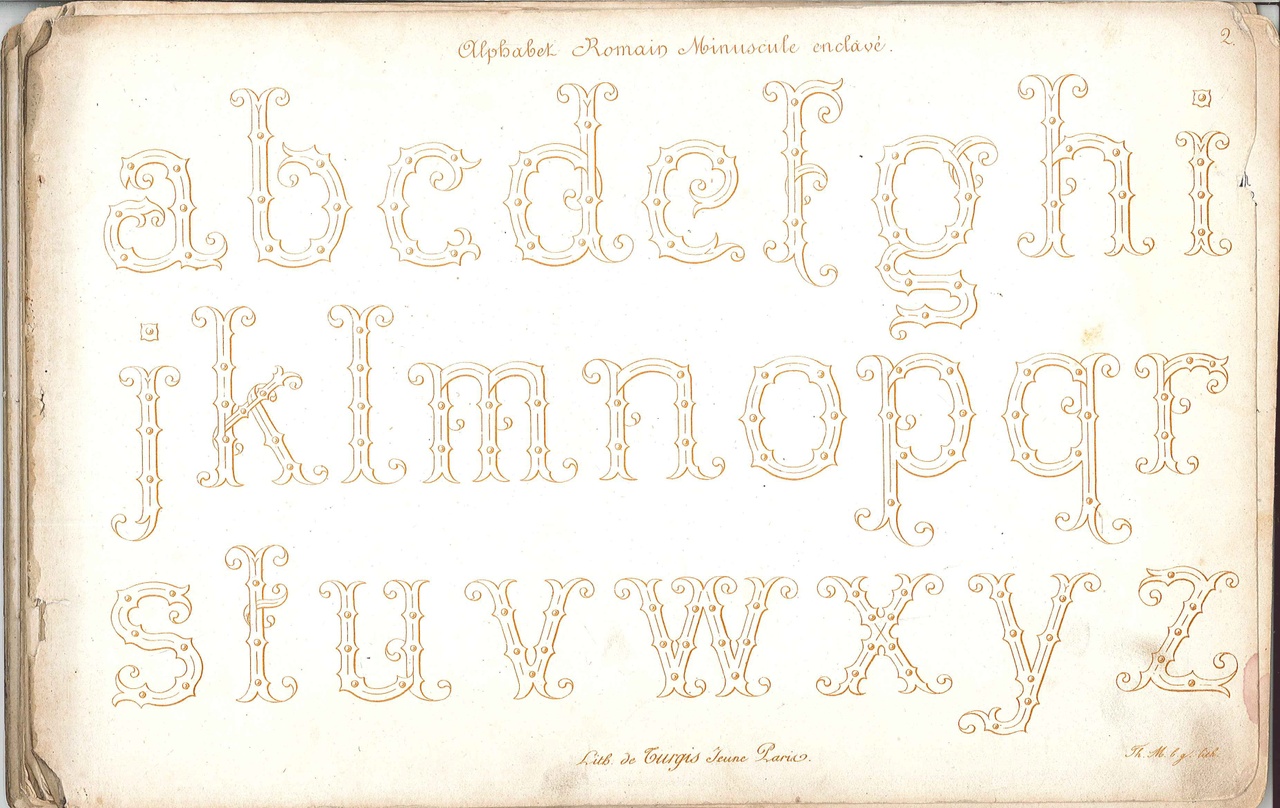 Alphabet Romain Minuscule enclavé.
2.
a b c d e f g h i
j k l m n o p q r
s t u v w x y z
Lith. de Turgis Jeune Paris.
Th. M. lith.